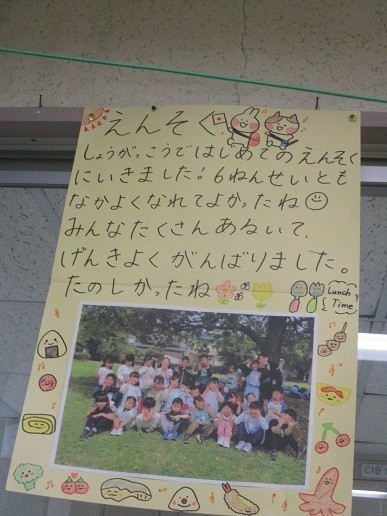 えんそく
しょうがっこうではじめてのえんそく
にいきました！6ねんせいとも
なかよくなれてよかったね
みんなたくさんあるいて、
げんきよくがんばりました。
たのしかったね
Lunch
Time
CIB